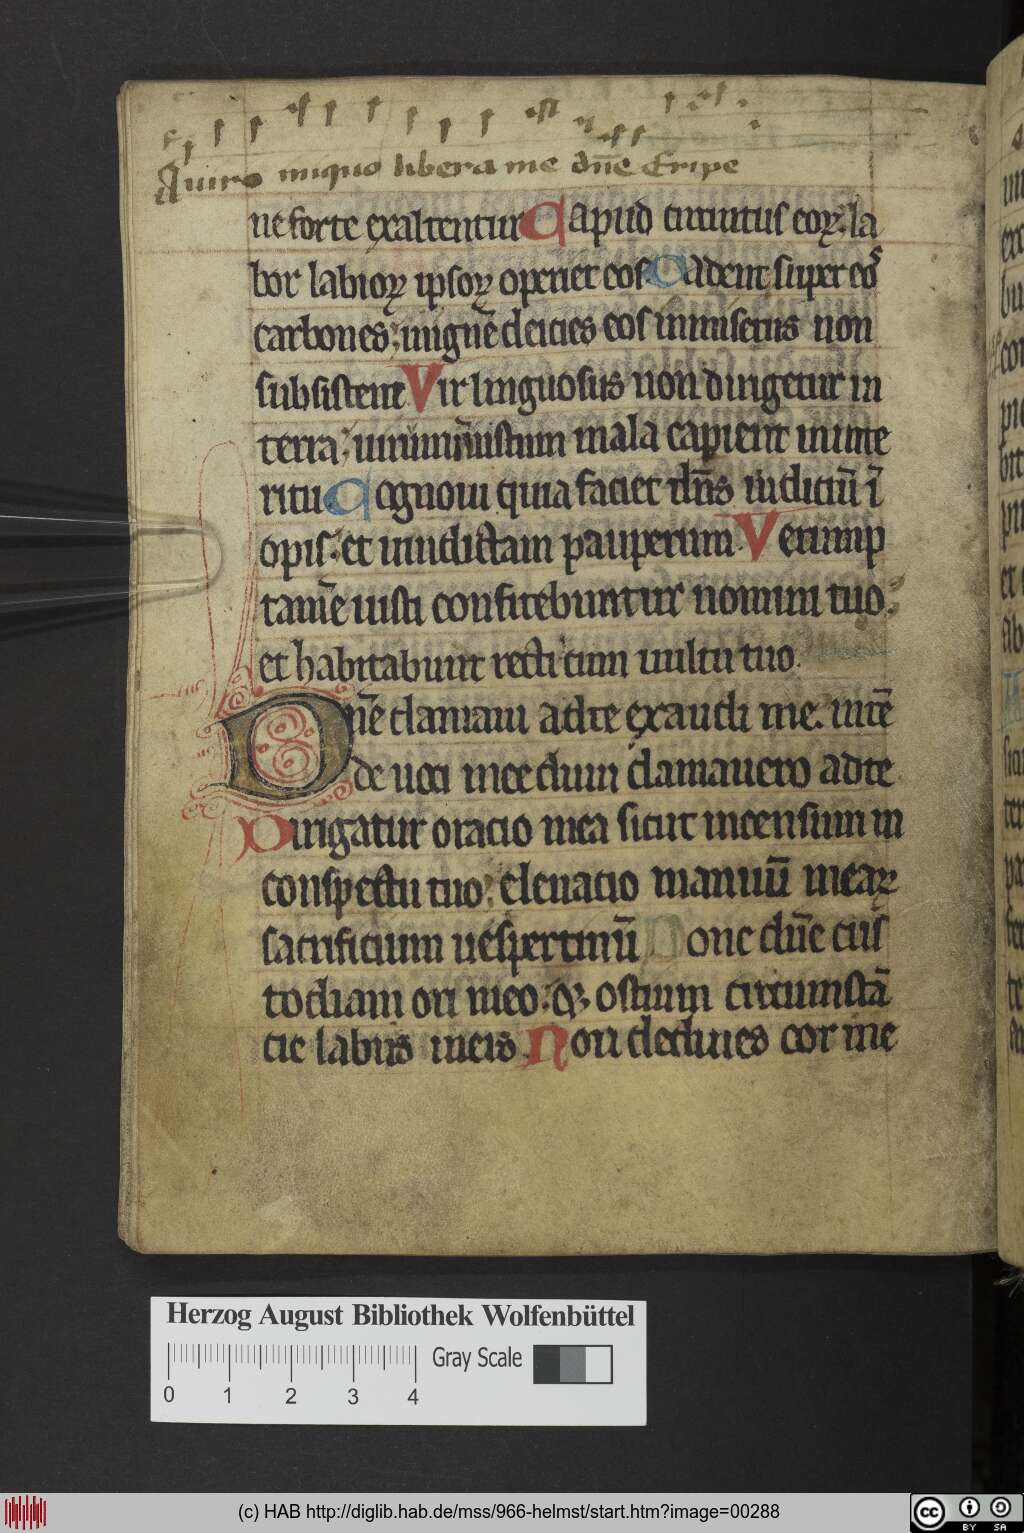 A uiro iniquo libera me dn̄e Eripe
ne forte exaltentur Capud circuitus eoꝝ: la
bor labioꝝ ipsoꝝ operiet eos. Cadent super eos
carbones: in ignē deicies eos in miseriis non
subsistent Vir linguosus non dirigetur in
terra: uirum iniustum mala capient in inte
ritu Cognoui quia faciet dn̄s iudiciū ī
opis: et uindictam pauperum. Verump
tam̄e iusti confitebuntur nomini tuo:
et habitabunt recti cum uultu tuo.
Dn̄e clamaui ad te exaudi me. intē
de uoci mee dum clamauero ad te.
Dirigatur oracio mea sicut incensum in
conspectu tuo: eleuacio manuū meaꝝ
sacrificium uespertinū Pone dn̄e cus
todiam ori meo: & ostium circumstā
cie labiis meis. Non declines cor me
Herzog August Bibliothek Wolfenbüttel
Gray Scale
0 1 2 3 4
(c) HAB http://diglib.hab.de/mss/966-helmst/start.htm?image=00288
cc BY SA